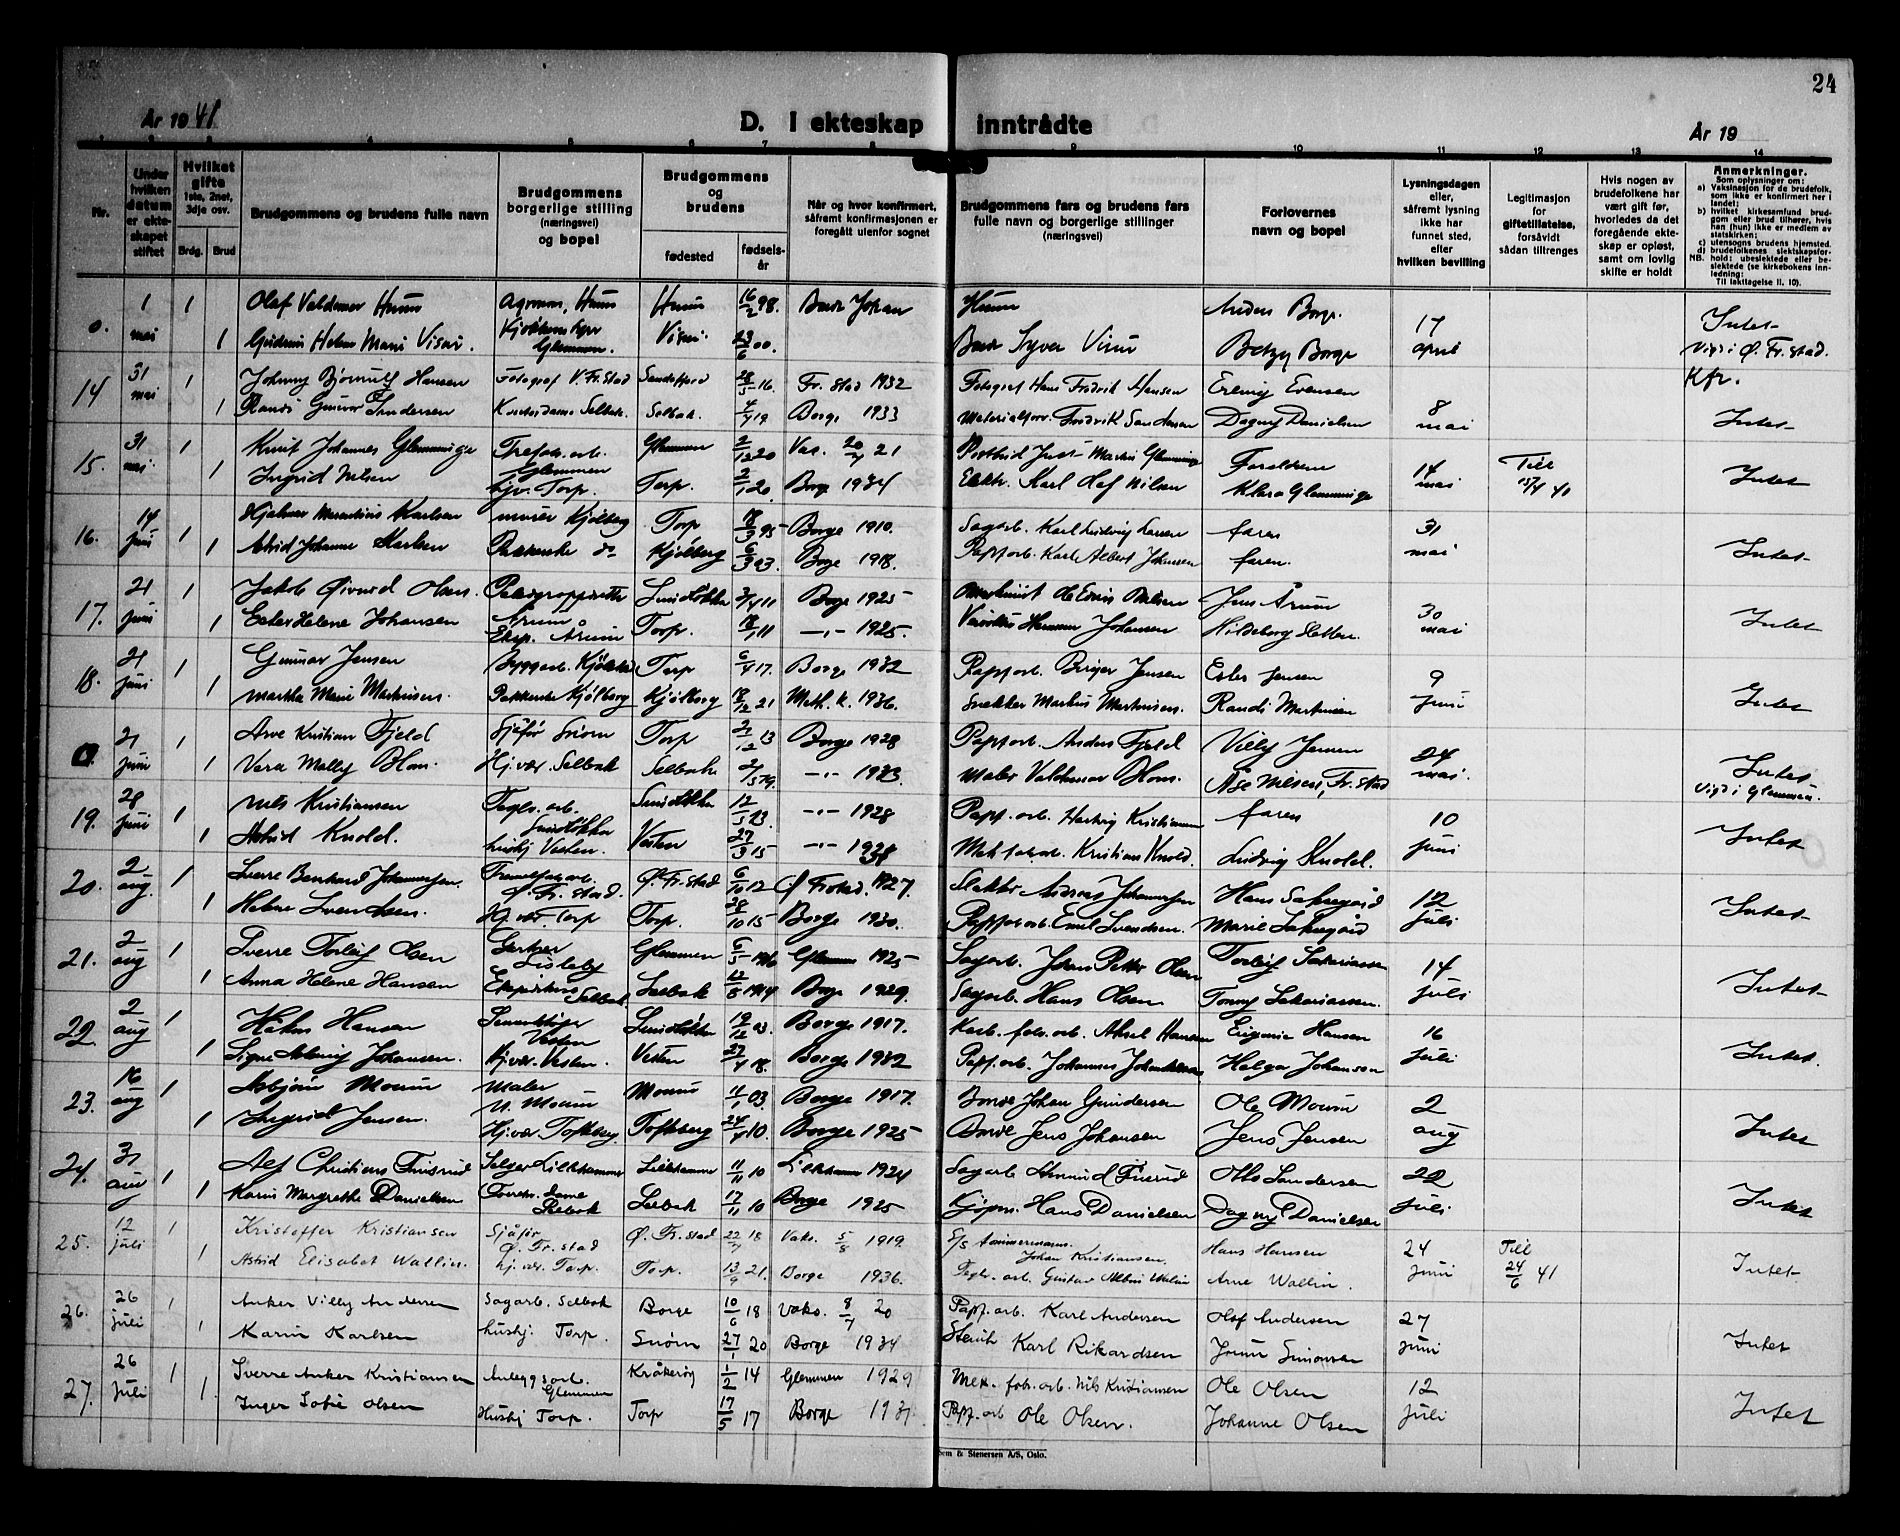 24
År 1941
D. I ekteskap inntrådte
År 19
Nr.
Under hvilken datum er ekteskapet stiftet
Hvilket gifte
1ste, 2net, 3dje osv.
Brdg. Brud
Brudgommens og brudens fulle navn
Brudgommens borgerlige stilling (næringsvei) og bopel
Brudgommens og brudens
fødested
fødsels-år
Når og hvor konfirmert, såfremt konfirmasjonen er foregått utenfor sognet
Brudgommens fars og brudens fars fulle navn og borgerlige stillinger (næringsvei)
Forlovernes navn og bopel
Lysningsdagen eller, såfremt lysning ikke har funnet sted, eller hvilken bevilling
Legitimasjon for giftetillatelse, forsåvidt sådan tiltrenges
Hvis nogen av brudefolkene har vært gift før, hvorledes da det foregående ekteskap er opløst, samt om lovlig skifte er holdt
Anmerkninger.
Som oplysninger om:
a) Vaksinasjon for de brudefolk, som ikke er konfirmert her i landet;
b) hvilket kirkesamfund brudgom eller brud tilhører, hvis han (hun) ikke er medlem av statskirken;
c) utensogns brudens hjemsted.
d) brudefolkenes slektskapsforhold: ubeslektede eller beslektede (se kirkebokens innledning:
NB. Til iakttagelse II. 10).
0. 1 mai 1 Olaf Valdemar Huum Huum Huum 16/2 98. Anders Borge
1 Helene Marie Visur Glemmen. 23/6 00. Betzy Borge 17 april Intet
Vigd i Ø. Fr.stad.
14 31 mai 1 Johnny Hansen Fotograf V. Fr.stad Sandefjord 28/5 16. Fr. stad 1932 Fotograf Hans Fredrik Hansen Erling Evensen Kfr.
1 Randi Gunvor Selbak. Selbak. 4/4 19 Borge 1933 Dagny Danielsen 8 mai Intet
15. 31 mai Knut Johannes Glemminge Glemmen Glemmen 2/12 20 Vac. 20/7 21 Martin Glemminge Foreldrene
1 Ingrid Nilsen hjv. Torp. Torp. 2/1 20 Borge 1934 Elektr. Karl Olaf Nilsen Klara Glemminge 14 mai Till 15/4 40 Intet
16. 14 juni 1 Hjalmar Karlsen murer Kjølberg Torp 18/3 95 Borge 1910. Sagarb. Karl Ludvig Larsen faren 31 mai
1 Astrid Johanne Karlsen Kjølberg 6/3 03. Borge 1918. Papparb. Karl Albert Johansen faren. Intet
17. 21 juni 1 Jakob Øivind Olsen. Årum 3/4 11 Borge 1925 Jens Årum
1 Ester Helene Johansen Eksp. Årum Torp. 18/1 11 —"— 1925. Johansen Hildeborg 30 mai Intet
18. 21 juni 1 Gunnar Jensen Torp 6/4 17. Borge 1932 Papparb. Birger Jensen Ester Jensen 9 juni
1 Martha Marie Martinsen. Kjølberg Kjølberg 18/12 21 Meth. k. 1936. Snekker Markus Martinsen. Randi Martinsen Intet
0. 21 juni 1 Arve Kristian Fjeld Sjåfør Torp 2/12 13 Borge 1928 Papparb. Anders Fjeld Villy Jensen
1 Vera Molly Blom. Hj.vær. Selbak Selbak —"— 1933. Maler Valdemar Blom. Åse Nilsen, Fr.stad 24 mai. Intet
Vigd i Glemmen.
19. 28 juni 1 Nils Kristiansen Teglv. arb. 12/5 13. —"— 1928 Papp. arb. Hartvig Kristiansen faren 10 juni
1 Astrid Knold. Vesten. Vesten 27/3 15 —"— Kristian Knold. Ludvig Knold. Intet
20. 2 aug. 1 Sverre Bernhard Johannessen. Ø. Fr. stad. Ø. Fr. stad 6/10 12 Ø Frstad. 1927. Johannessen Hans 12 juli
1 Helene Svendsen. Hj. vær. Torp Torp. 28/10 15 Borge 1930. Papparb. Emil Svendsen. Marie Intet
21. 2 aug 1 Sverre Torleif Olsen Lisleby Glemmen 6/5 Glemmen 1925 Sagarb. Johan Petter Olsen Torleif Sakariassen 14 juli
1 Anna Helene Hansen Selbak Selbak 12/8 1914 Borge 1929. Sagarb. Hans Olsen Tonny Sakariassen. Intet
22. 2 aug 1 Håkon Hansen Vesten 19/12 03 Borge 1917. Karb. fabr. arb. Aksel Hansen Eugenie Hansen 16 juli
1 Signe Solveig Johansen. Hj.vær. Vesten. Vesten 27/4 18. Borge 1932 Papp. arb. Johannes Helga Johansen Intet
23. 16 aug 1 Asbjørn Moum Maler N. Moum Moum 11/1 03. Borge 1917. Johan Gundersen Ole Moum 2 aug
1 Ingrid Jensen. Hj.vær Tofteberg Tofteberg 24/4 10. Borge 1925 Jens Johansen Jens Jensen Intet
24. 31 1 Alf Christian Lillehammer Lillehammer 11/11 10 Lillehammer 1924 Sagarb. Otto Sandersen 22 juli
1 Karin Margrethe Danielsen Selbak Selbak 17/11 10 Borge 1925 Kjøpm. Hans Danielsen Dagny Danielsen Intet
25. 12 juli 1 Kristoffer Kristiansen Sjåfør Ø. Fr. stad Ø. Fr. stad 22/7 18 Vaks. 5/8 1919. Johan Kristiansen. Hans Hansen 24 juni Till 24/6 41
1 Astrid Elisabet Wallin. hj. vær. Torp. Torp. 13/9 21. Borge 1936. Teglv. arb. Gustav Albin Wallin Arne Wallin. Intet
26. 26 juli 1 Anker Villy Andersen Sagarb. Selbak Borge 10/6 18 Vaks. 8/7 20 Papp. arb. Karl Andersen Olaf Andersen 27 juni
1 Karin Karlsen hushj. Torp. 27/1 20 Borge 1934 Karl Rikardsen Simonsen Intet
27. 26 juli 1 Sverre Anker Kristiansen Anleggsarb. Glemmen Kråkerøy 1/2 14 Glemmen 1929 Mek. fabr. arb. Nils Kristiansen Ole Olsen 12 juli
1. Inger Sofie Olsen Hushj Torp. Torp 17/5 17 Borge 1931. Papp. arb Ole Olsen. Johanne Olsen Intet
Sem & Stenersen A/S, Oslo.